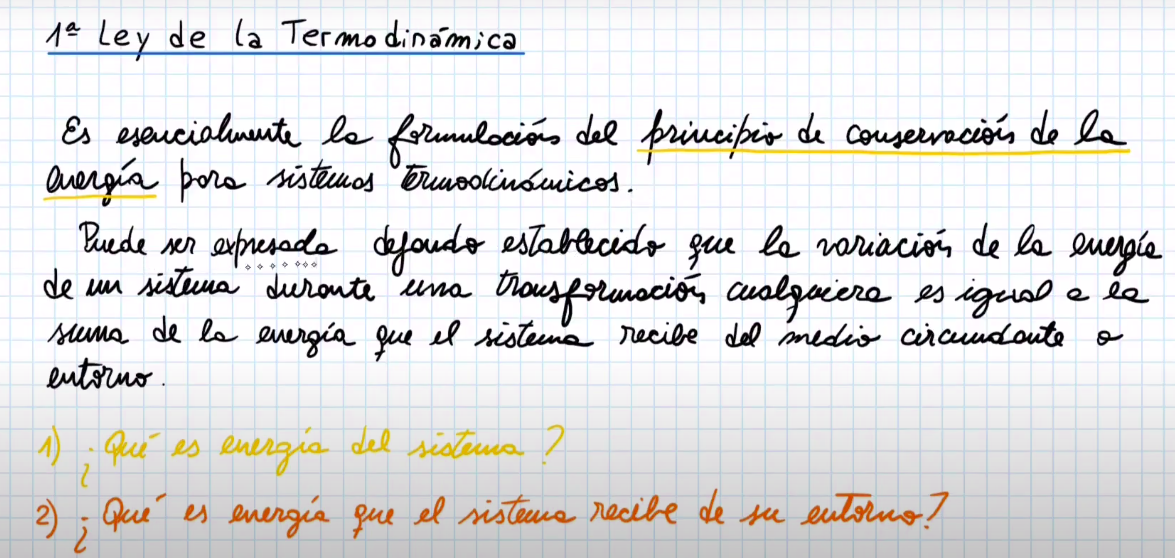 1ª Ley de la Termodinámica
Es esencialmente la formulación del principio de conservación de la
energía para sistemas termodinámicos.
Puede ser expresada dejando establecido que la variación de la energía
de un sistema durante una transformación cualquiera es igual a la
suma de la energía que el sistema recibe del medio circundante o
entorno.
1) ¿Qué es energía del sistema?
2) ¿Qué es energía que el sistema recibe de su entorno?